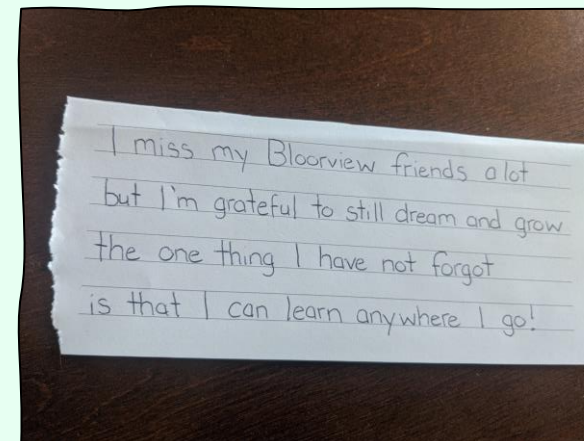 I miss my Bloorview friends alot
but I'm grateful to still dream and grow
the one thing I have not forgot
is that I can learn anywhere I go!